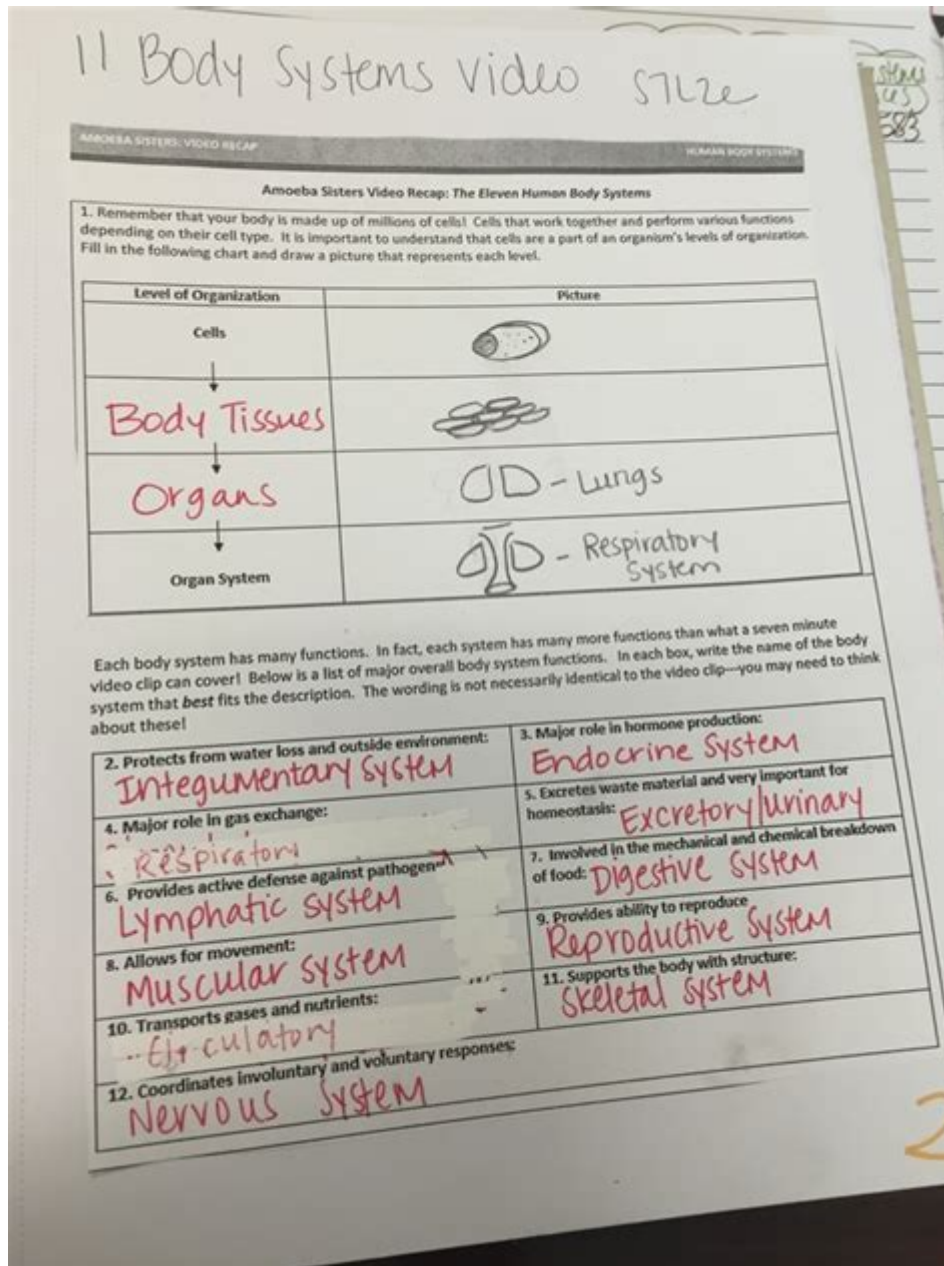 11 Body Systems Video
AMOEBA SISTERS: VIDEO RECAP
HUMAN BODY SYSTEMS
583
Amoeba Sisters Video Recap: The Eleven Human Body Systems
1. Remember that your body is made up of millions of cells! Cells that work together and perform various functions
depending on their cell type. It is important to understand that cells are a part of an organism's levels of organization.
Fill in the following chart and draw a picture that represents each level.
Level of Organization
Picture
Cells
Body Tissues
Organs
- Lungs
Organ System
- Respiratory
System
Each body system has many functions. In fact, each system has many more functions than what a seven minute
video clip can cover! Below is a list of major overall body system functions. In each box, write the name of the body
system that best fits the description. The wording is not necessarily identical to the video clip—you may need to think
about these!
2. Protects from water loss and outside environment:
Integumentary System
3. Major role in hormone production:
Endocrine System
4. Major role in gas exchange:
Respiratory
5. Excretes waste material and very important for
homeostasis: Excretory/Urinary
6. Provides active defense against pathogen
Lymphatic System
7. Involved in the mechanical and chemical breakdown
of food: Digestive System
8. Allows for movement:
Muscular System
9. Provides ability to reproduce
Reproductive System
10. Transports gases and nutrients:
11. Supports the body with structure:
Skeletal System
12. Coordinates involuntary and voluntary responses:
Nervous System
2